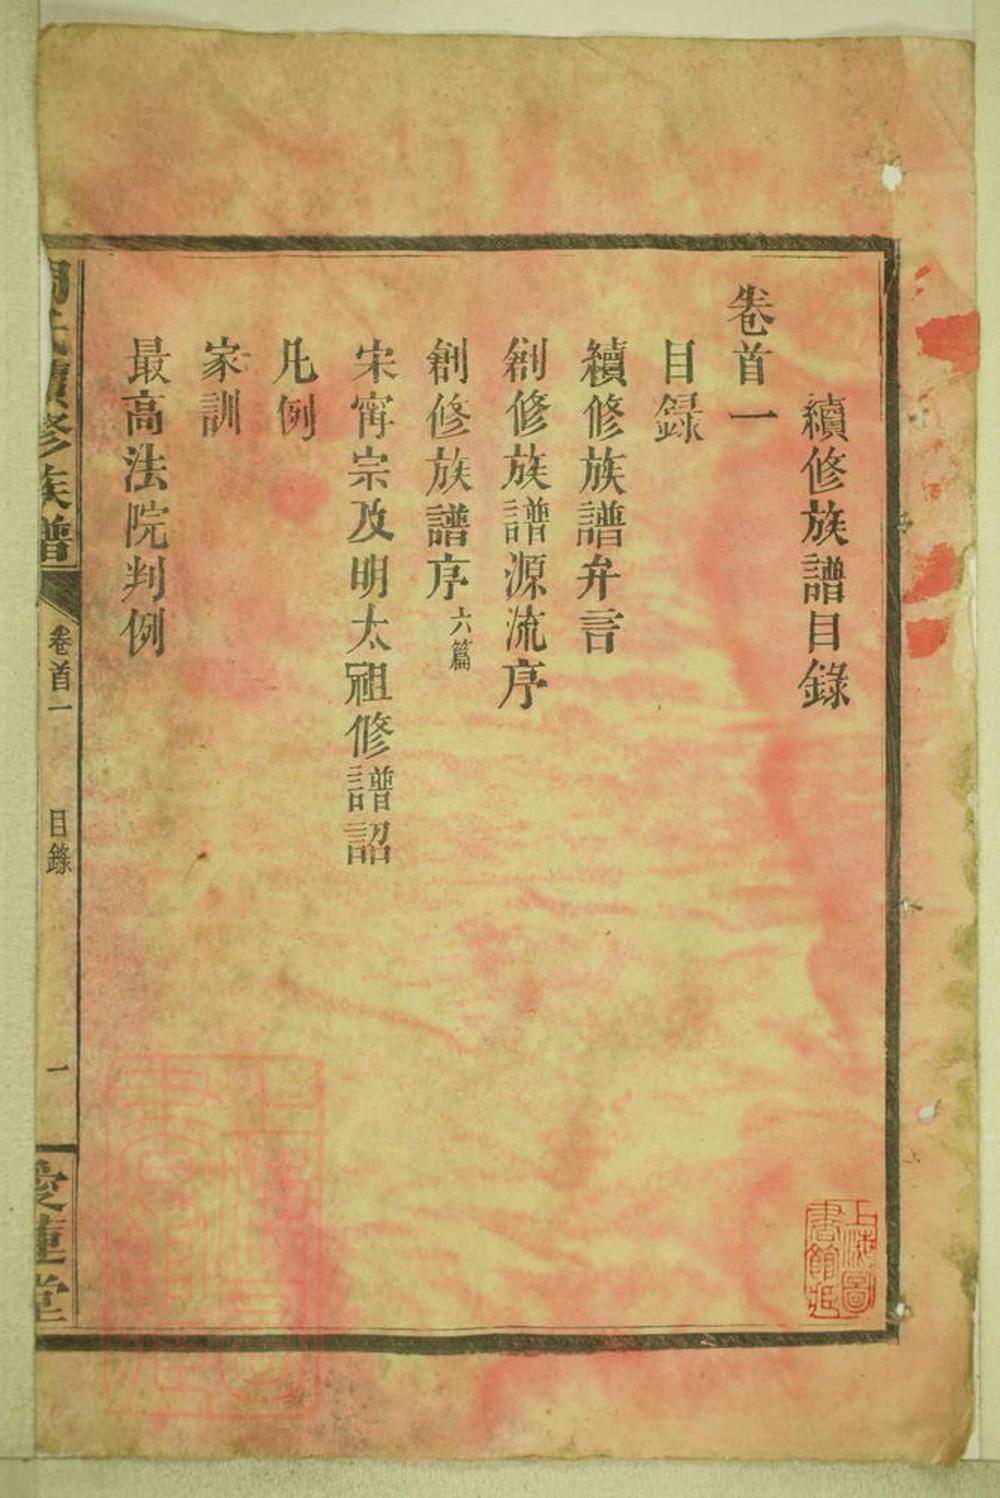 續修族譜目錄
卷首一
目録
續修族譜弁言
創修族譜源流序
創修族譜序 六篇
宋甯宗及明太祖修譜詔
凡例
家訓
最高法院判例
周氏續修族譜
卷首一
目錄
一
愛蓮堂
上海圖書館藏